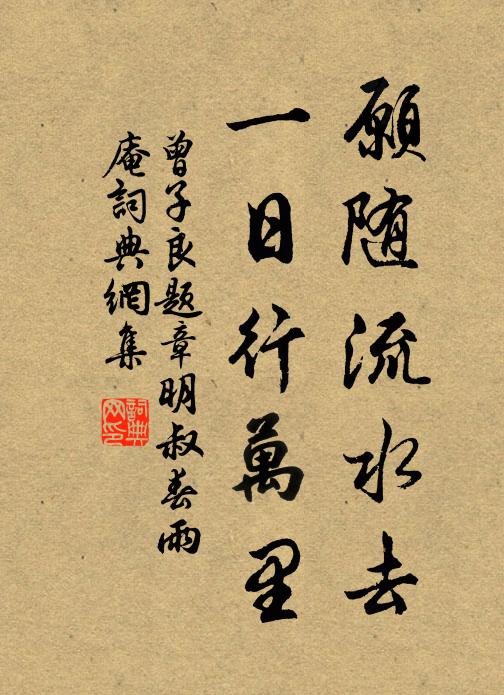 願随流水去
一日行萬里
曾子良题章明叔春雨
庵詞典網集
詞典
网印